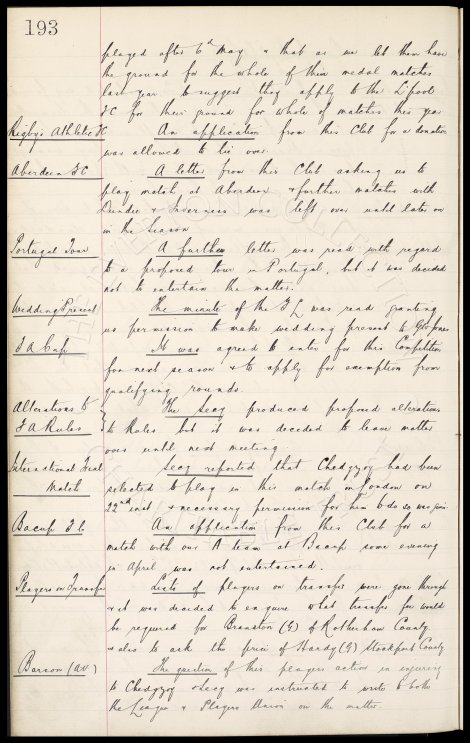 193
played after 6th May & that as we let them have
the ground for the whole of their medal matches
last year to suggest they apply to the L'pool
FC for their ground for whole of matches this year
Rigby's Athletic FC An application from this Club for a donation
was allowed to lie over.
Aberdeen FC A letter from this Club asking us to
play match at Aberdeen & further matches with
Dundee & Inverness was left over until later on
in the Season
Portugal Tour A further letter was read with regard
to a proposed tour in Portugal, but it was decided
not to entertain the matter.
Wedding Present The minute of the F L was read granting
us permission to make wedding present to Geo
F A Cup It was agreed to enter for this Competition
for next season & to apply for exemption from
qualifying rounds.
Alterations to The Secy produced proposed alterations
F A Rules to Rules but it was decided to leave matter
over until next meeting
International Trial Secy reported that Chedgzoy had been
Match selected to play in this match in London on
22nd inst & necessary permission for him to do so was given
Bacup F C An application from this Club for a
match with our A team at Bacup some evening
in April was not entertained.
Players on Transfer Lists of players on transfer were gone through
& it was decided to enquire what transfer fee would
be required for Branston (G) of Rotherham County
& also to ask the price of Hardy (G) Stockport County
Barson (AV) The question of this players action in injuring
to Chedgzoy & Secy was instructed to write to both
the League & Players Union on the matter.